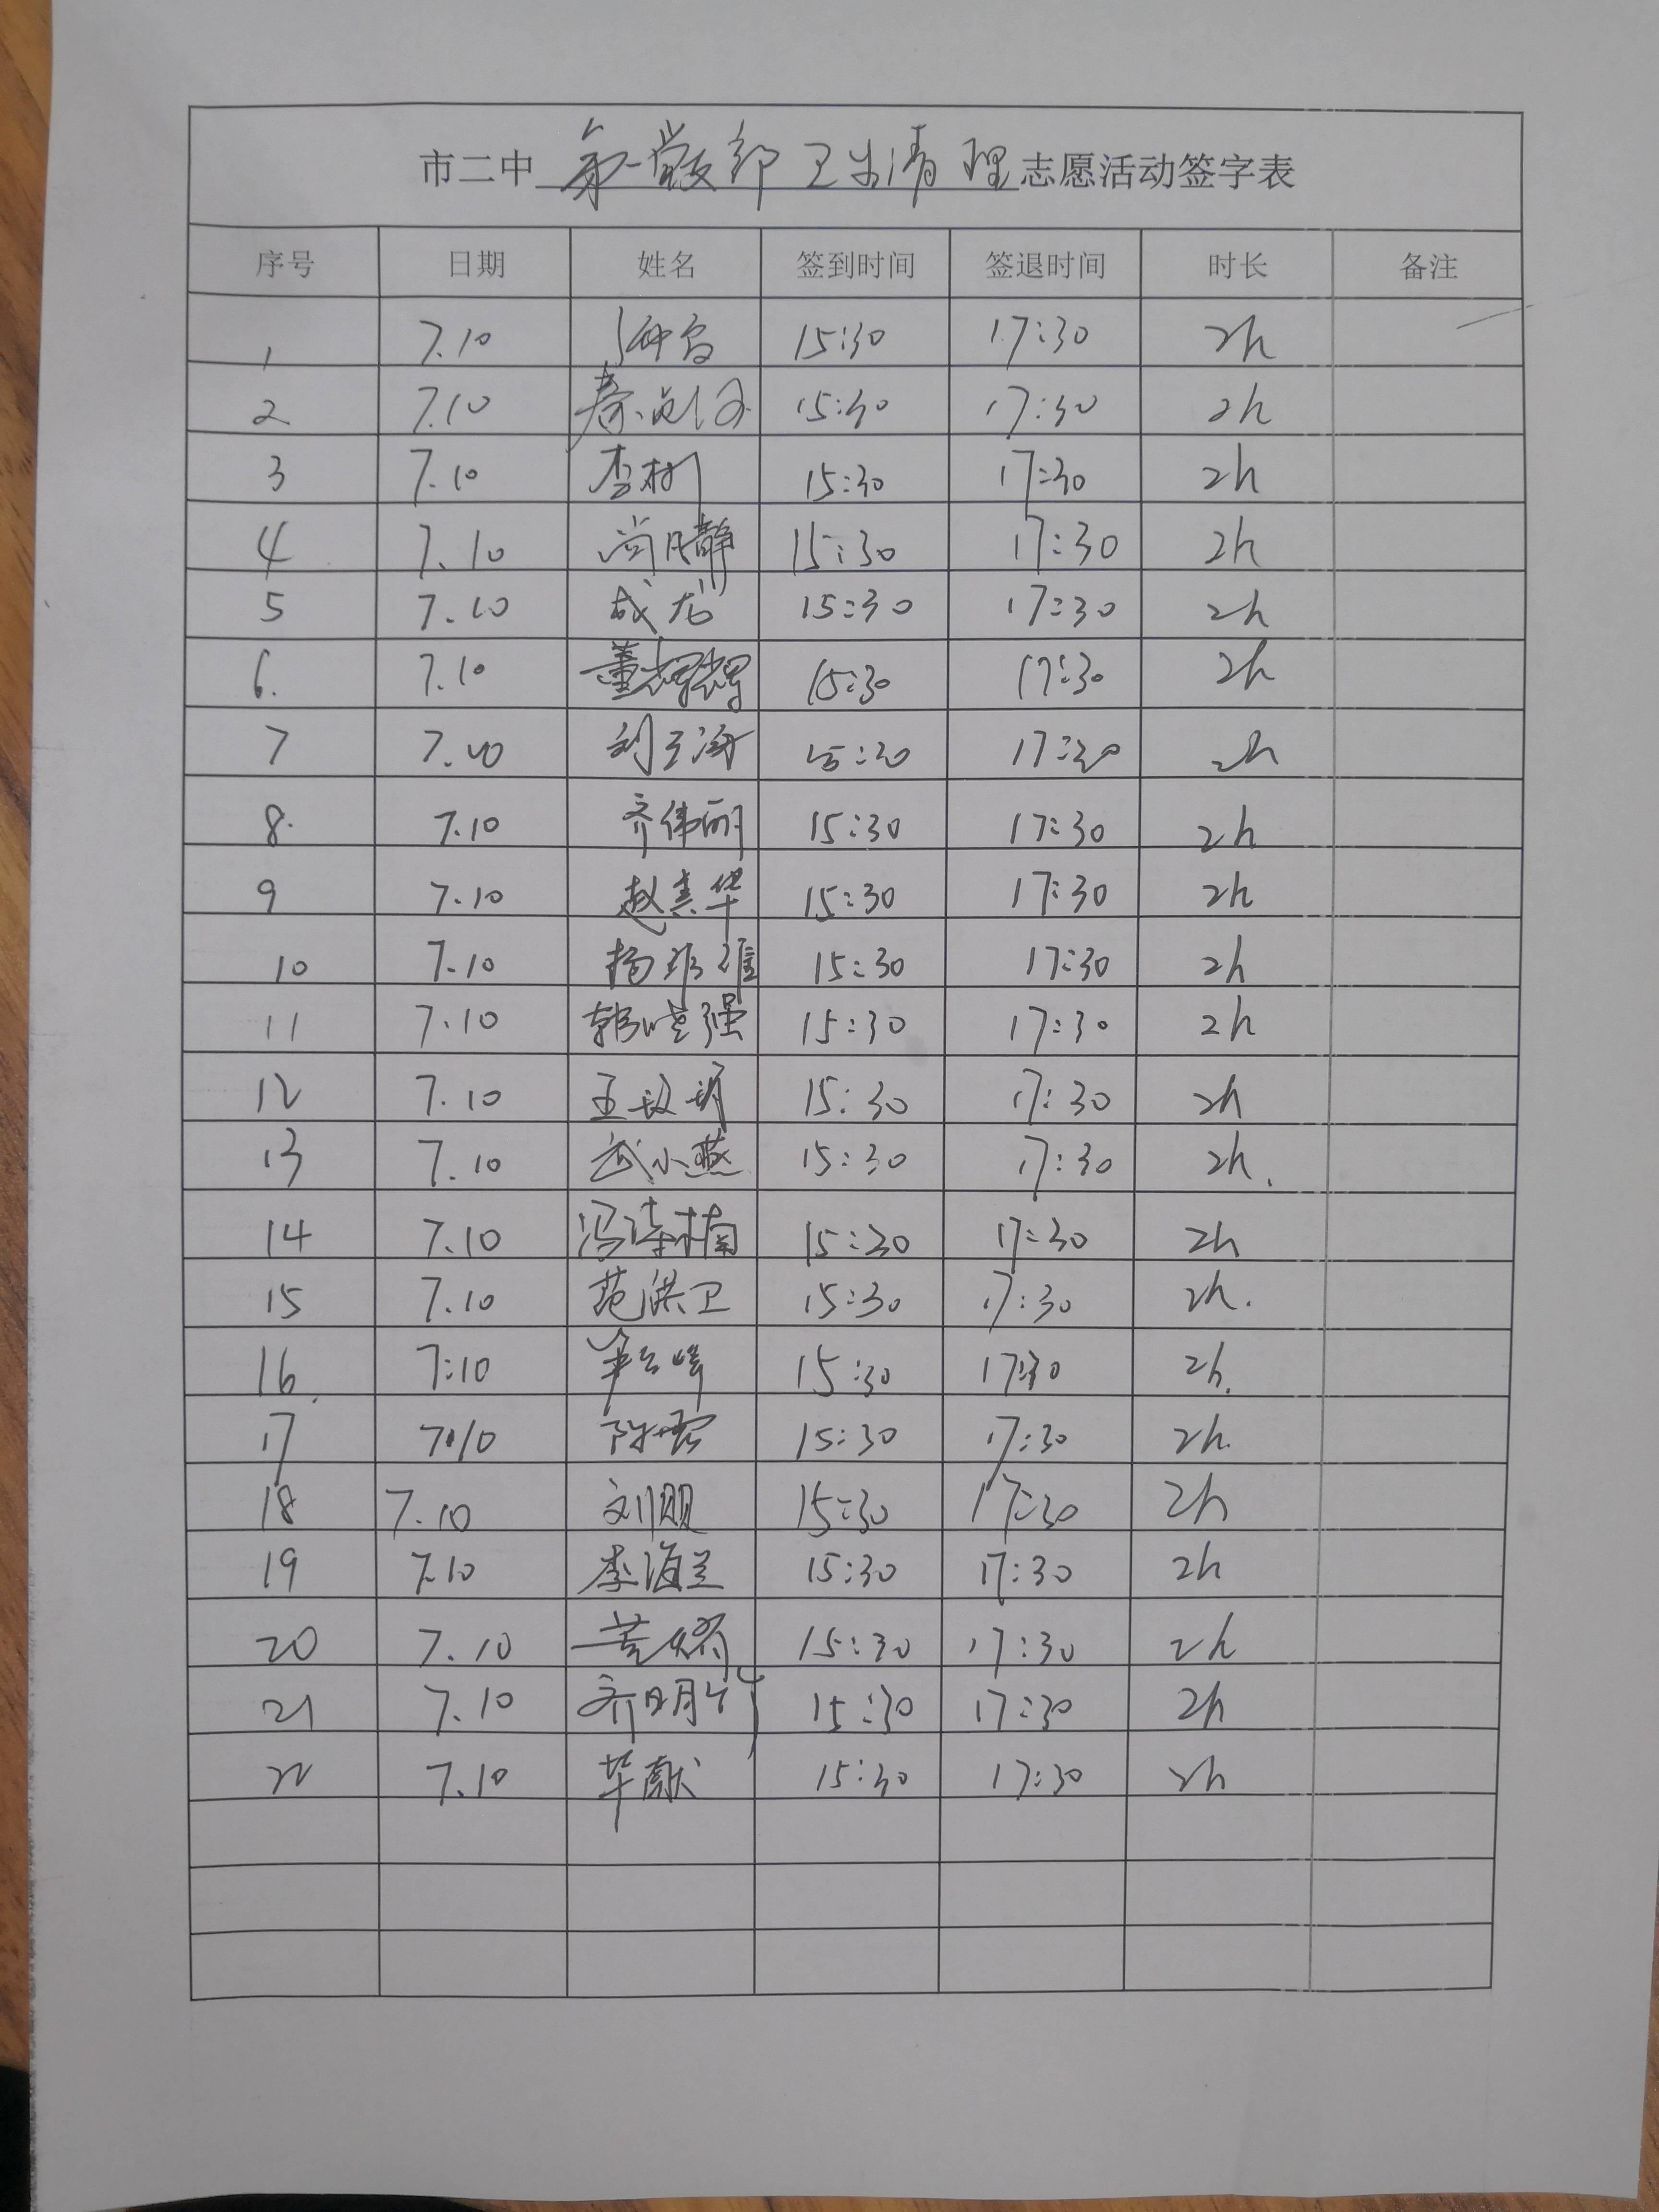 市二中 第一学部卫生清理 志愿活动签字表
序号 日期 姓名 签到时间 签退时间 时长 备注
1 7.10 15:30 17:30 2h
2 7.10 15:30 17:30 2h
3 7.10 李树 15:30 17:30 2h
4 7.10 尚晴静 15:30 17:30 2h
5 7.10 成龙 15:30 17:30 2h
6. 7.10 董耀耀 15:30 17:30 2h
7 7.10 15:30 17:30 2h
8. 7.10 齐伟丽 15:30 17:30 2h
9 7.10 赵素华 15:30 17:30 2h
10 7.10 15:30 17:30 2h
11 7.10 郭晓强 15:30 17:30 2h
12 7.10 15:30 17:30 2h
13 7.10 武小燕 15:30 17:30 2h.
14 7.10 15:30 17:30 2h
15 7.10 范洪卫 15:30 17:30 2h.
16. 7:10 15:30 17:30 2h.
17 7.10 15:30 17:30 2h.
18 7.10 15:30 17:30 2h
19 7.10 李海兰 15:30 17:30 2h
20 7.10 15:30 17:30 2h
21 7.10 15:30 17:30 2h
22 7.10 华献 15:30 17:30 2h